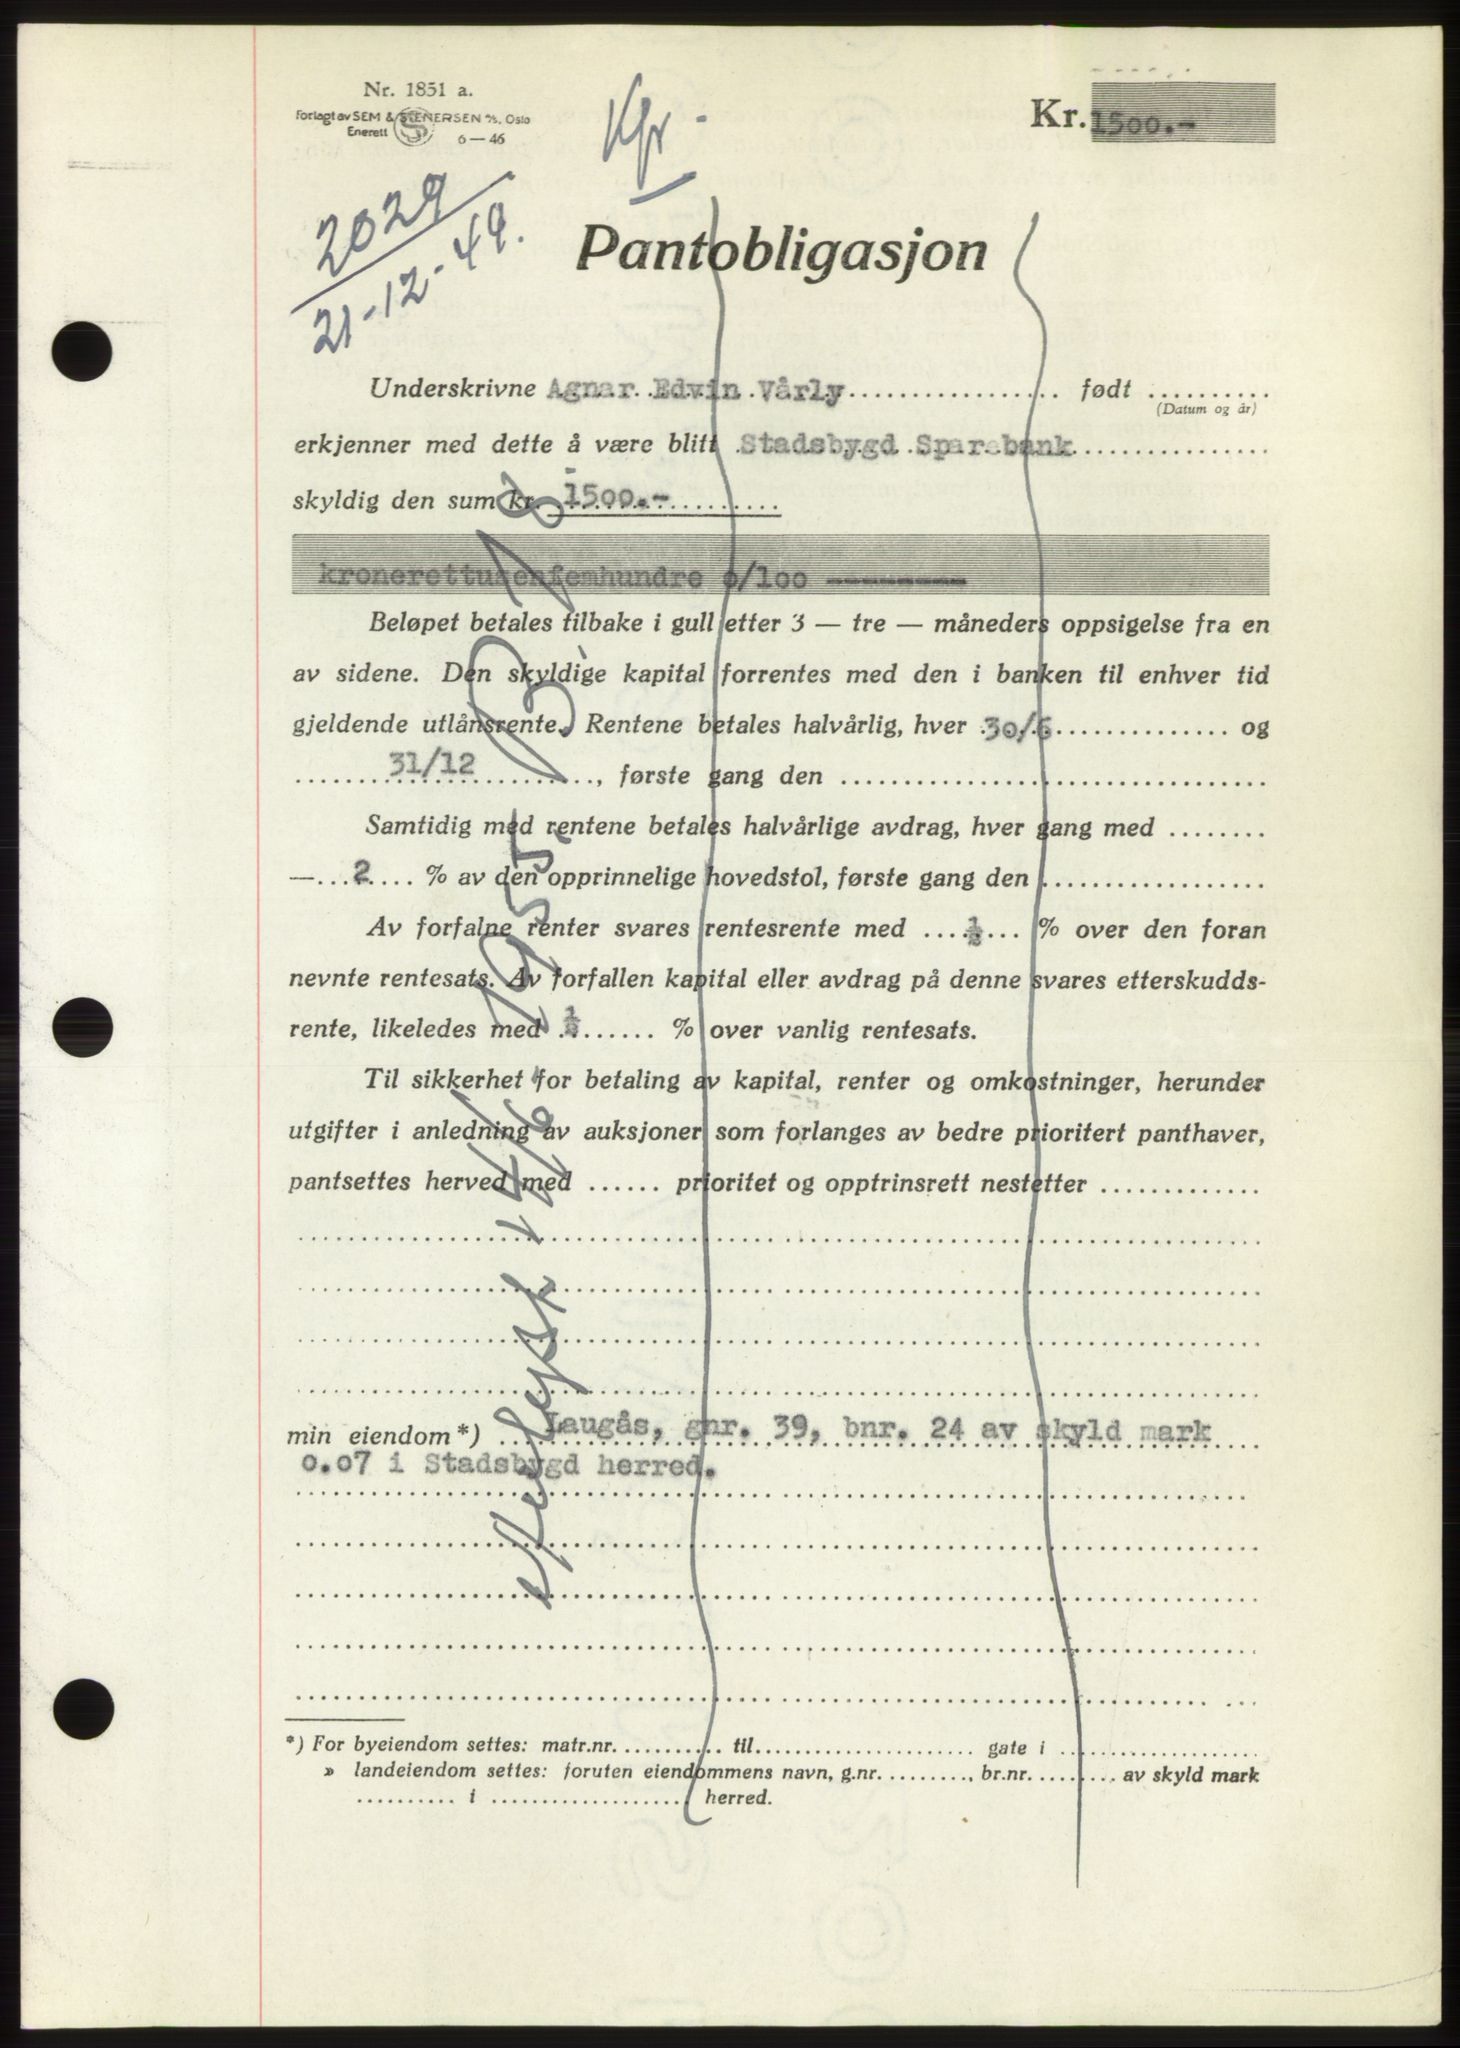 Nr. 1851 a.
Forlagt av SEM & STENERSEN A/S, Oslo
Enerett
6 — 46
Kr. 1500.-
2029
21-12-49.
Pantobligasjon
Underskrivne Agnar Edvin Vårly født
(Datum og år)
erkjenner med dette å være blitt Stadsbygd Sparebank
skyldig den sum kr. 1500.-
kronerettusenfemhundre o/100
Beløpet betales tilbake i gull etter 3 — tre — måneders oppsigelse fra en
av sidene. Den skyldige kapital forrentes med den i banken til enhver tid
gjeldende utlånsrente. Rentene betales halvårlig, hver 30/6 og
31/12, første gang den
Samtidig med rentene betales halvårlige avdrag, hver gang med
— 2 % av den opprinnelige hovedstol, første gang den
Av forfalne renter svares rentesrente med ½ % over den foran
nevnte rentesats. Av forfallen kapital eller avdrag på denne svares etterskudds-
rente, likeledes med ½ % over vanlig rentesats.
Til sikkerhet for betaling av kapital, renter og omkostninger, herunder
utgifter i anledning av auksjoner som forlanges av bedre prioritert panthaver,
pantsettes herved med ...... prioritet og opptrinsrett nestetter
min eiendom*) Laugås, gnr. 39, bnr. 24 av skyld mark
0.07 i Stadsbygd herred.
Avlyst 14/6 1955
*) For byeiendom settes: matr.nr. ........... til ........... gate i ...........
» landeiendom settes: foruten eiendommens navn, g.nr. ........., br.nr. ......... av skyld mark
.......... i .................... herred.